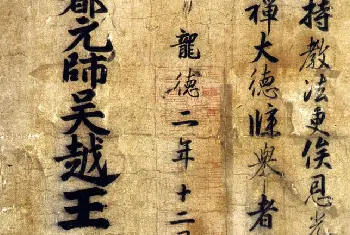 持教法更俟恩光
禪大德牒舉者
龍德二年十二月
都元帥吳越王